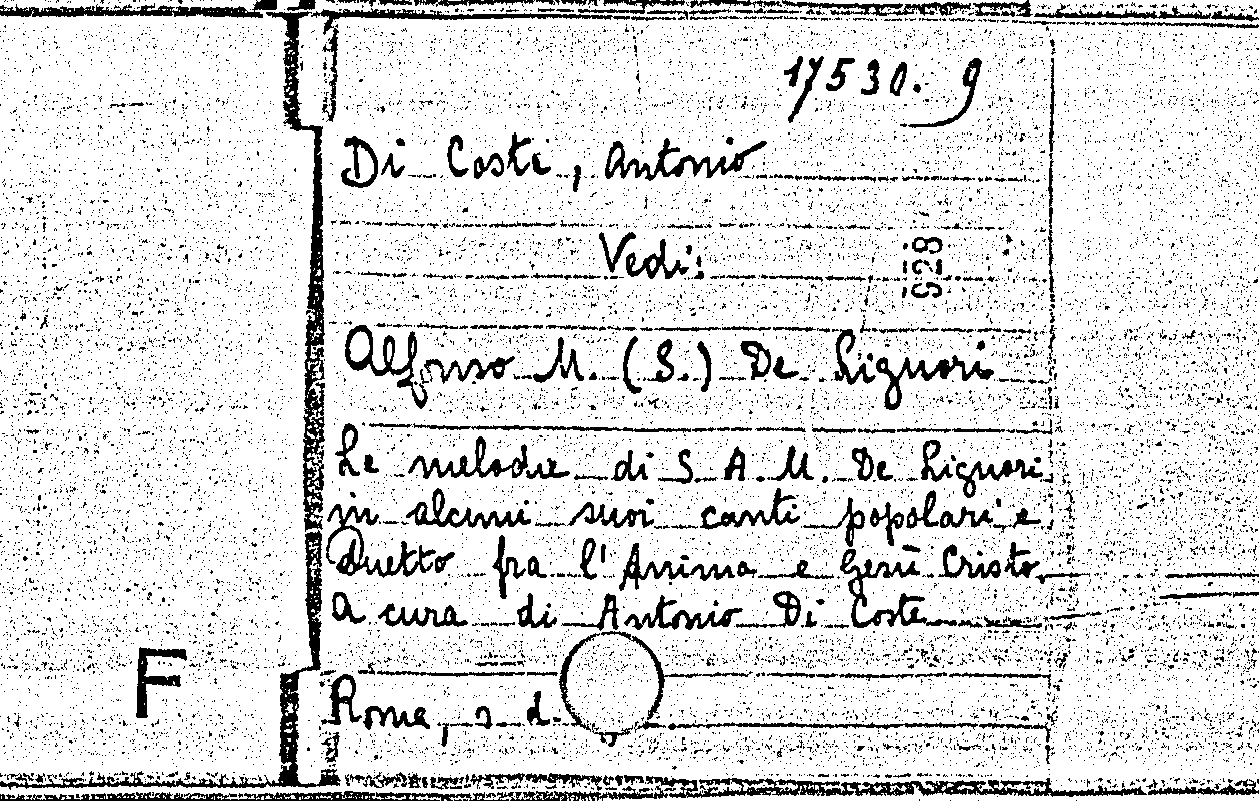 17530. 9
Di Coste, Antonio
Vedi:
928
Alfonso M. (S.) De Liguori
Le melodie di S. A. M. De Liguori
in alcuni suoi canti popolari e
Duetto fra l'Anima e Gesù Cristo.
A cura di Antonio Di Coste
F
Roma, s. d.